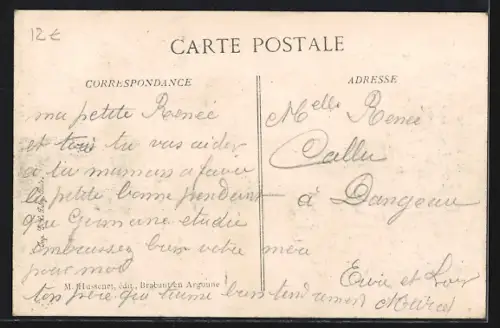 12€
CARTE POSTALE
CORRESPONDANCE
ADRESSE
ma petite Renée
et toi tu vas aider
à ta maman a faire
la petite bonne pendant
que Germaine etudie
embrassez bien votre mère
pour moi
ton père qui taime bien tendrement
Melle Renée
Callu
à Dangeau
Eure et Loir
M. Hussenet, édit., Brabant-en Argonne